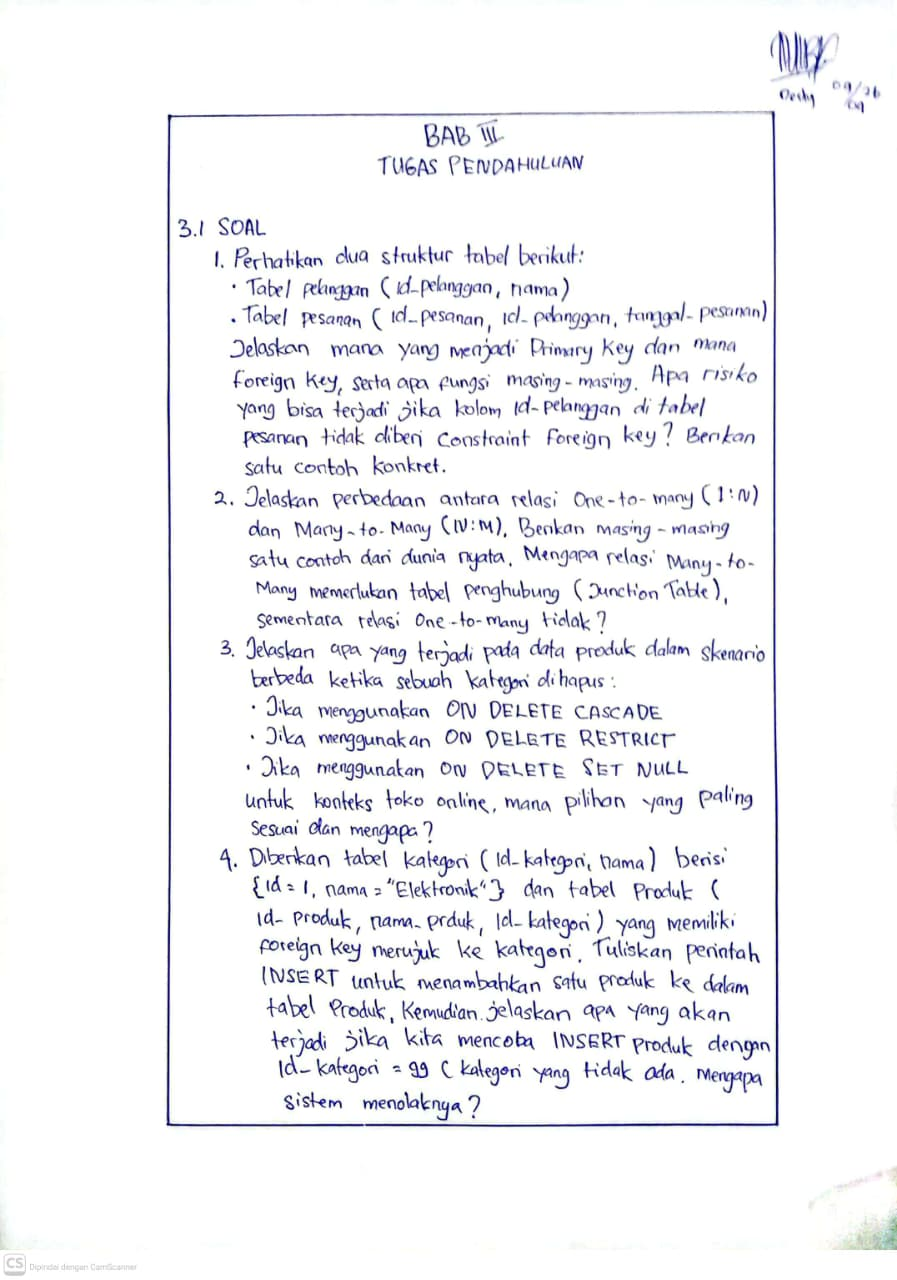 Desty 09/26
09
BAB III
TUGAS PENDAHULUAN
3.1 SOAL
1. Perhatikan dua struktur tabel berikut:
• Tabel pelanggan (id_pelanggan, nama)
• Tabel pesanan (id_pesanan, id_pelanggan, tanggal_pesanan)
Jelaskan mana yang menjadi Primary Key dan mana
Foreign Key, serta apa fungsi masing-masing. Apa risiko
yang bisa terjadi jika kolom id_pelanggan di tabel
pesanan tidak diberi Constraint Foreign key? Berikan
satu contoh konkret.
2. Jelaskan perbedaan antara relasi One-to-many (1:N)
dan Many-to-Many (N:M). Berikan masing-masing
satu contoh dari dunia nyata. Mengapa relasi Many-to-
Many memerlukan tabel penghubung (Junction Table),
sementara relasi One-to-many tidak?
3. Jelaskan apa yang terjadi pada data produk dalam skenario
berbeda ketika sebuah kategori dihapus:
• Jika menggunakan ON DELETE CASCADE
• Jika menggunakan ON DELETE RESTRICT
• Jika menggunakan ON DELETE SET NULL
untuk konteks toko online, mana pilihan yang paling
sesuai dan mengapa?
4. Diberikan tabel kategori (id_kategori, nama) berisi
{id = 1, nama = "Elektronik"} dan tabel Produk (
id_produk, nama_prduk, id_kategori) yang memiliki
foreign key merujuk ke kategori. Tuliskan perintah
INSERT untuk menambahkan satu produk ke dalam
tabel Produk, Kemudian jelaskan apa yang akan
terjadi jika kita mencoba INSERT produk dengan
id_kategori = 99 (kategori yang tidak ada. Mengapa
sistem menolaknya?
CS Dipindai dengan CamScanner